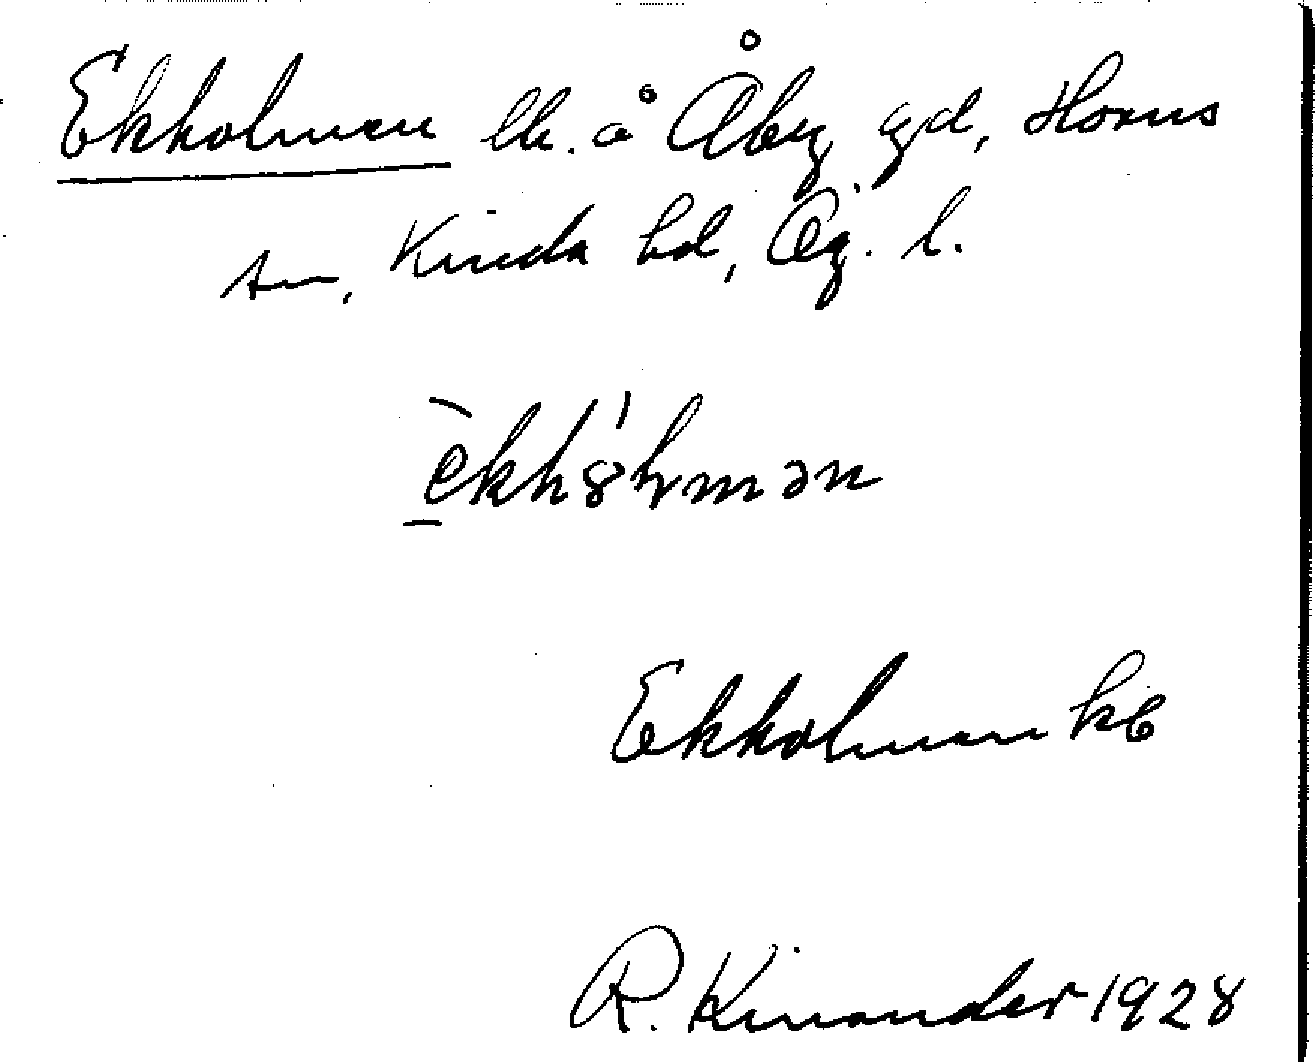 Ekholmen lh. å Åby gd, Horns
sn, Kinda hd, Ög. l.
Ekholmen kE
R. Kinander 1928